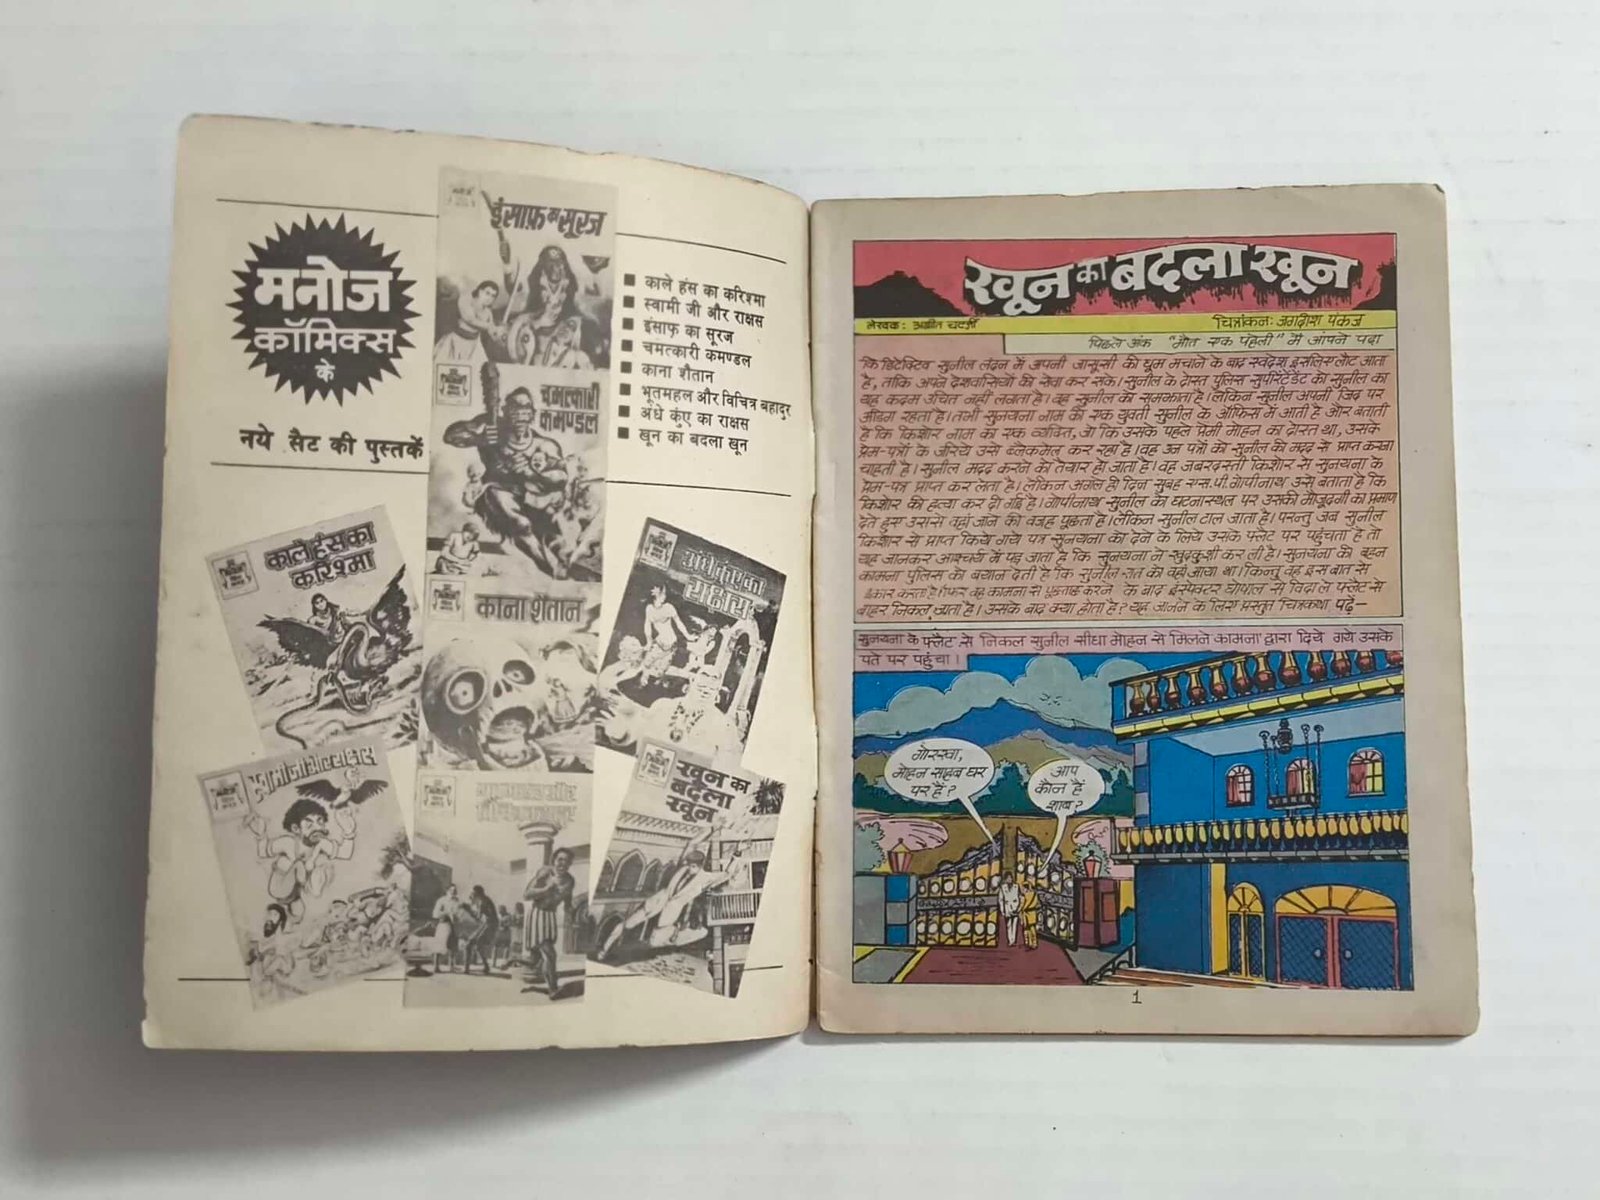 मनोज
कॉमिक्स
के
नये सैट की पुस्तकें
इंसाफ़ का सूरज
चमत्कारी
कमण्डल
काना शैतान
■ काले हंस का करिश्मा
■ स्वामी जी और राक्षस
■ इंसाफ का सूरज
■ चमत्कारी कमण्डल
■ काना शैतान
■ भूतमहल और विचित्र बहादुर
■ अंधे कुंए का राक्षस
■ खून का बदला खून
काले हंस का
करिश्मा
अंधे कुंए का
राक्षस
स्वामी जी और राक्षस
खून का
बदला
खून
खून का बदला खून
लेखक: अजीत चटर्जी
चित्रांकन: जगदीश पंकज
पिछले अंक "मौत एक पहेली" में आपने पढ़ा
कि डिटेक्टिव सुनील लंदन में अपनी जासूसी की धूम मचाने के बाद स्वदेश इसलिए लौट आता
है, ताकि अपने देशवासियों की सेवा कर सके। सुनील के दोस्त पुलिस सुपरिंटेंडेंट को सुनील का
यह कदम उचित नहीं लगता है। वह सुनील को समझाता है। लेकिन सुनील अपनी जिद पर
अडिग रहता है। तभी सुनयना नाम की एक युवती सुनील के ऑफिस में आती है और बताती
है कि किशोर नाम का एक व्यक्ति, जो कि उसके पहले प्रेमी मोहन का दोस्त था, उसके
प्रेम-पत्रों के जरिये उसे ब्लैकमेल कर रहा है। वह उन पत्रों को सुनील की मदद से प्राप्त करना
चाहती है। सुनील मदद करने को तैयार हो जाता है। वह जबरदस्ती किशोर से सुनयना के
प्रेम-पत्र प्राप्त कर लेता है। लेकिन अगले ही दिन सुबह एस.पी. गोपीनाथ उसे बताता है कि
किशोर की हत्या कर दी गई है। गोपीनाथ सुनील को घटनास्थल पर उसकी मौजूदगी का प्रमाण
देते हुए उससे वहां जाने की वजह पूछता है। लेकिन सुनील टाल जाता है। परन्तु जब सुनील
किशोर से प्राप्त किये गये पत्र सुनयना को देने के लिये उसके फ्लैट पर पहुंचता है तो
यह जानकर आश्चर्य में पड़ जाता है कि सुनयना ने खुदकुशी कर ली है। सुनयना की बहन
कामना पुलिस को बयान देती है कि सुनील रात को वहां आया था। किन्तु वह इस बात से
इंकार करता है। फिर वह कामना से पूछताछ करने के बाद इंस्पेक्टर घोषाल से विदा ले फ्लैट से
बाहर निकल जाता है। उसके बाद क्या होता है? यह जानने के लिए प्रस्तुत चित्रकथा पढ़ें—
सुनयना के फ्लैट से निकल सुनील सीधा मोहन से मिलने कामना द्वारा दिये गये उसके
पते पर पहुंचा।
गोरखा,
मोहन साहब घर
पर हैं?
आप
कौन हैं
शाब?
1